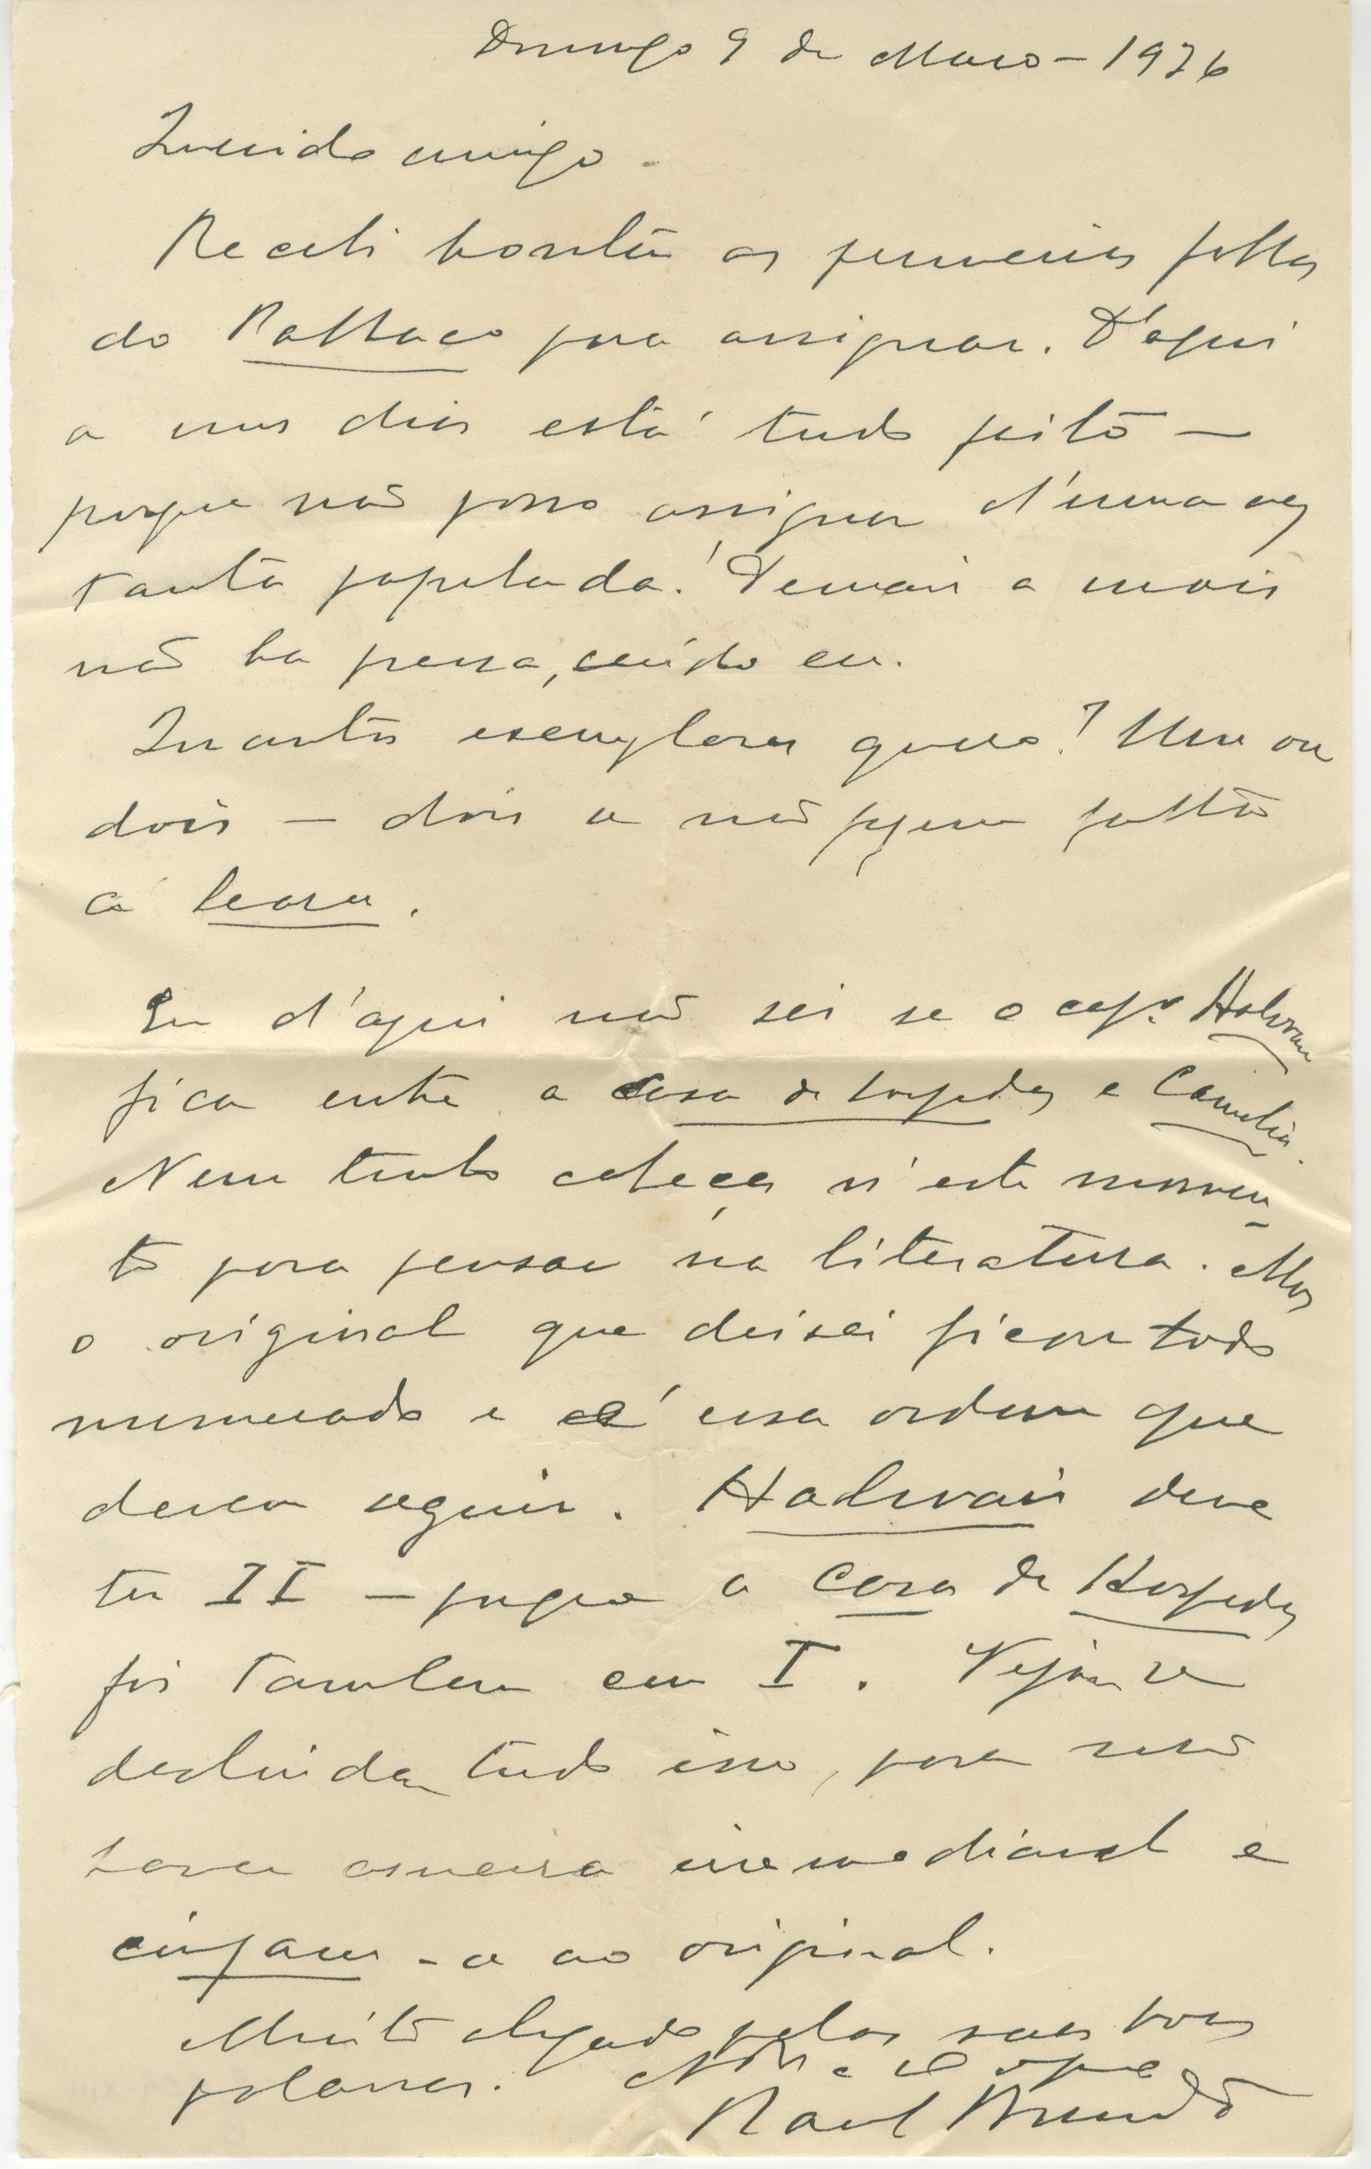 Domingo 9 de Maio - 1926
Querido amigo.
Recebi hontem as primeiras folhas
do Palhaço para assignar. D'aqui
a uns dias está tudo feito —
porque não posso assignar d'uma vez
tanta papelada! Demais a mais
não ha pressa, cuido eu.
Quantos exemplares quero? Um ou
dois — dois se não fizerem falta
á Seara.
Eu d'aqui não sei se o cap.º Halwain
fica entre a Casa de hospedes e Camelia.
Nem tenho cabeça n'este momen-
to para pensar na literatura. Mas
o original que deixei ficou todo
numerado e é essa ordem que
devem seguir. Halwain deve
ter II — porque a Casa de Hospedes
foi tambem em I. Vejam se
deslindam tudo isso, para não
haver asneira irremediavel e
cinjam-se ao original.
Muito obrigado pelas suas boas
palavras.
Raul Brandão